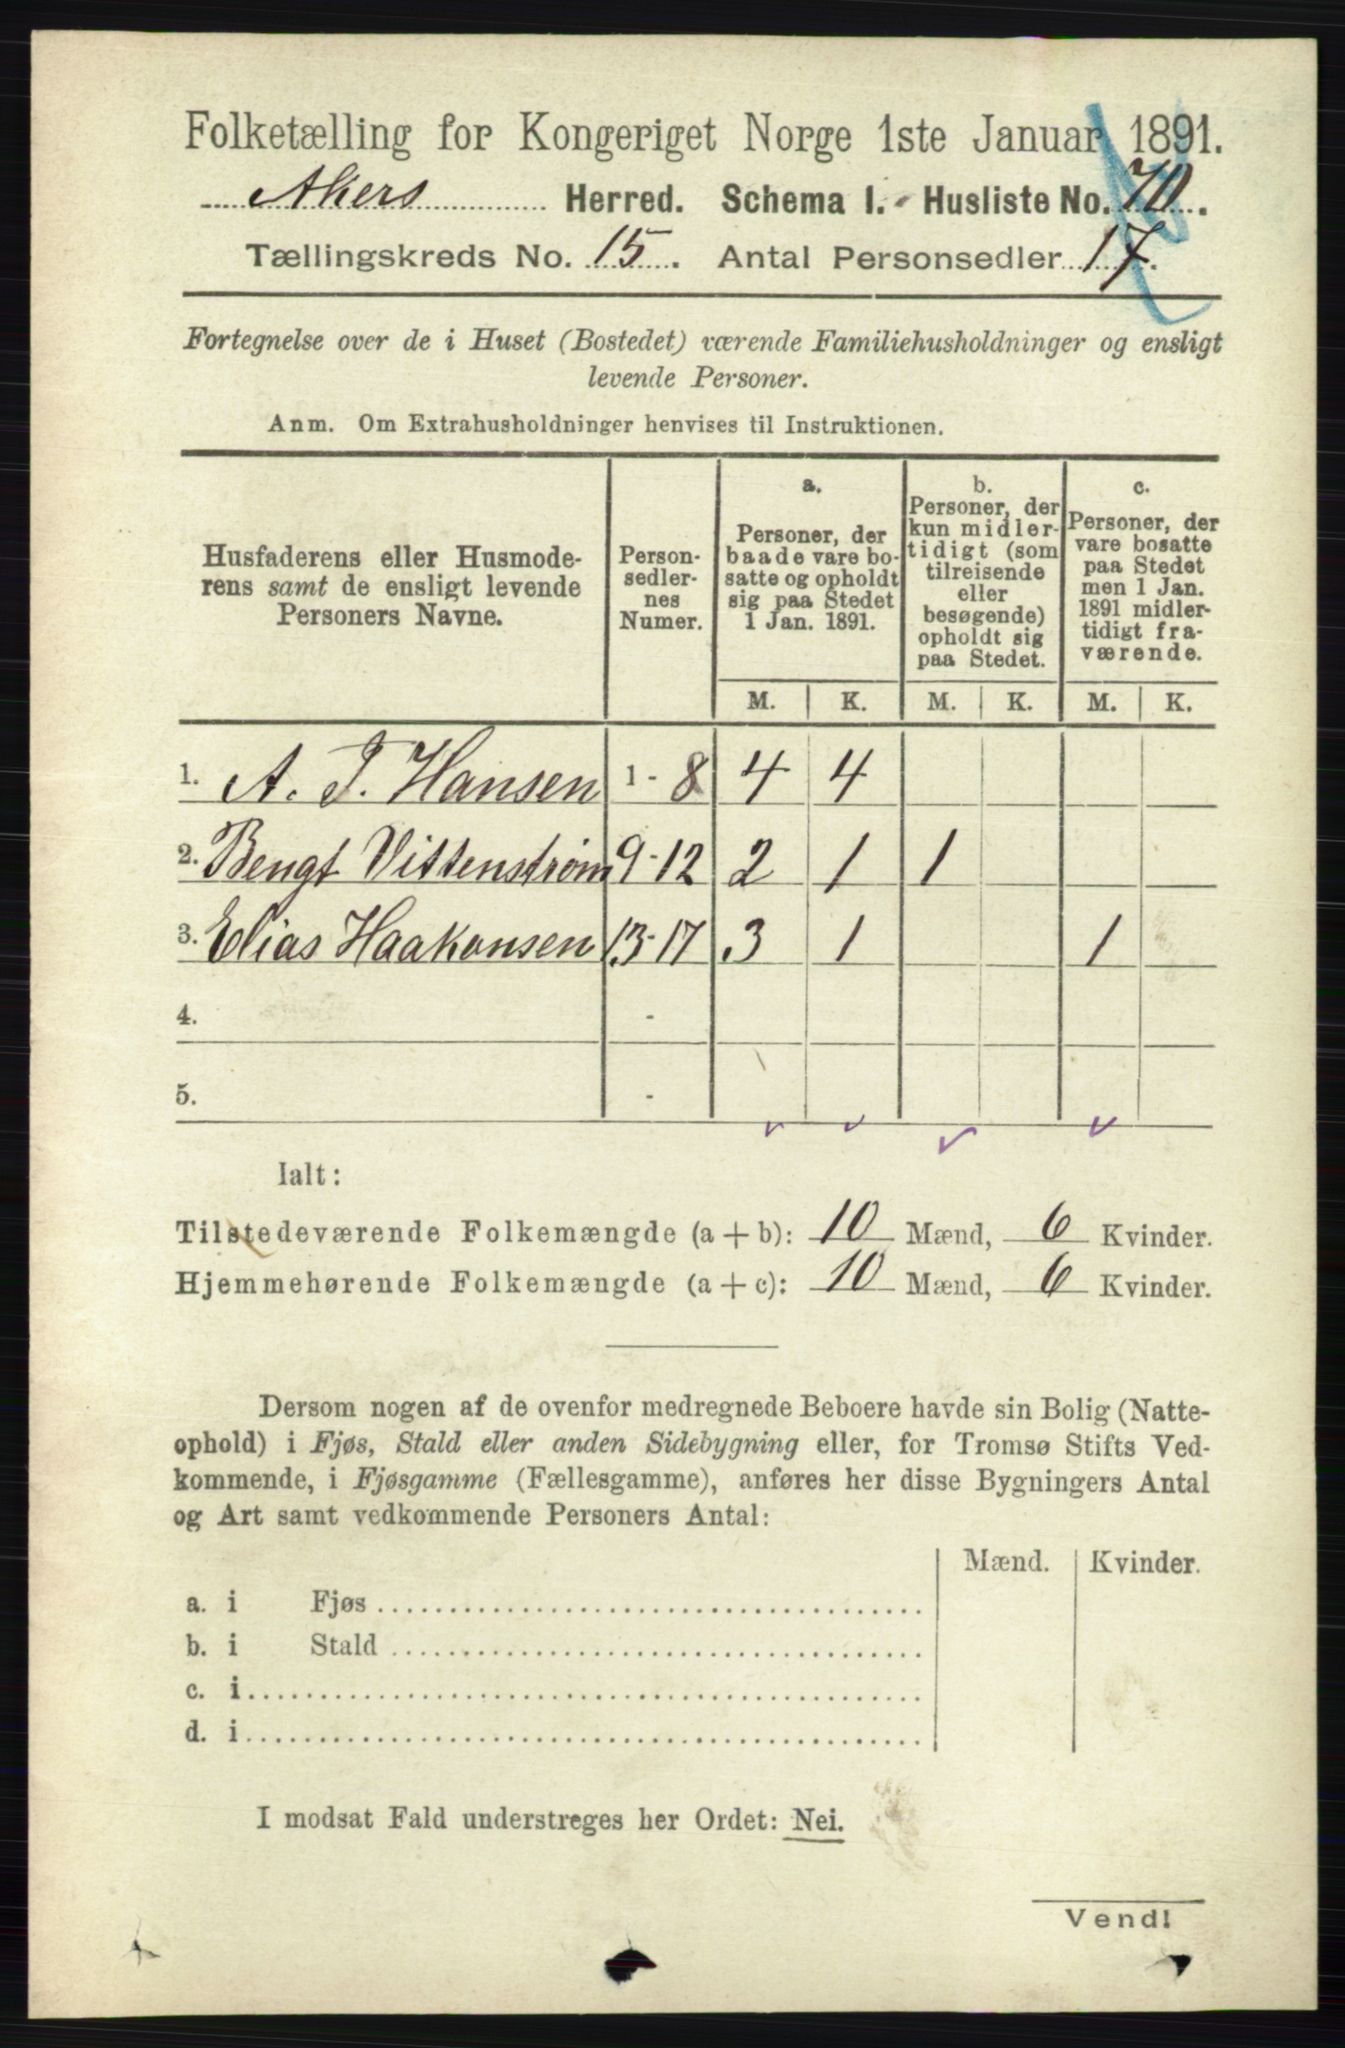 Folketælling for Kongeriget Norge 1ste Januar 1891.
Akers Herred. Schema I. - Husliste No. 70.
Tællingskreds No. 15. Antal Personsedler 17.
Fortegnelse over de i Huset (Bostedet) værende Familiehusholdninger og ensligt
levende Personer.
Anm. Om Extrahusholdninger henvises til Instruktionen.
Husfaderens eller Husmode-
rens samt de ensligt levende
Personers Navne.
Person-
sedler-
nes
Numer.
a.
Personer, der
baade vare bo-
satte og opholdt
sig paa Stedet
1 Jan. 1891.
b.
Personer, der
kun midler-
tidigt (som
tilreisende
eller
besøgende)
opholdt sig
paa Stedet.
c.
Personer, der
vare bosatte
paa Stedet
men 1 Jan.
1891 midler-
tidigt fra-
værende.
M. K. M. K. M. K.
1. A. J. Hansen 1 - 8 4 4
2. Bengt Vittenstrøm 9-12 2 1 1
3. Elias Haakonsen 13-17 3 1 1
4. -
5. -
Ialt:
Tilstedeværende Folkemængde (a + b): 10 Mænd, 6 Kvinder.
Hjemmehørende Folkemængde (a + c): 10 Mænd, 6 Kvinder.
Dersom nogen af de ovenfor medregnede Beboere havde sin Bolig (Natte-
ophold) i Fjøs, Stald eller anden Sidebygning eller, for Tromsø Stifts Ved-
kommende, i Fjøsgamme (Fællesgamme), anføres her disse Bygningers Antal
og Art samt vedkommende Personers Antal:
Mænd. Kvinder.
a. i Fjøs
b. i Stald
c. i
d. i
I modsat Fald understreges her Ordet: Nei.
Vend!